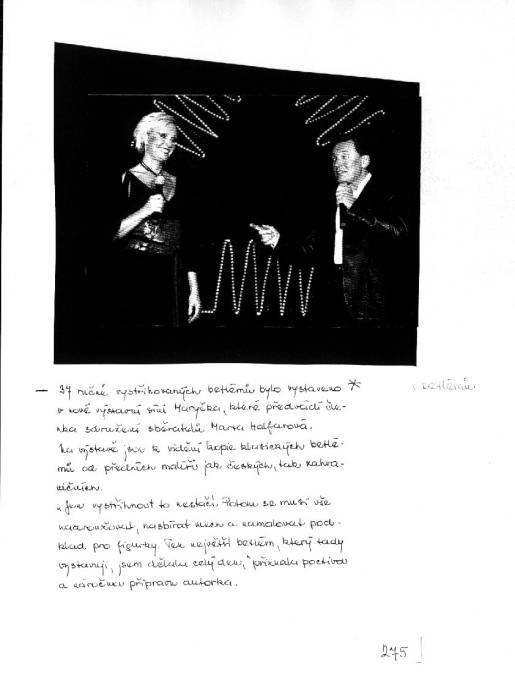 — 34 ručně vystřihovaných betlémů bylo vystaveno *
v nové výstavní síni Maryčka, které předvádí čle-
nka sdružení sběratelů Marta Halfarová.
Na výstavě jsou k vidění kopie klasických betlé-
mů od předních malířů jak českých, tak zahra-
ničních.
„Jen vystřihnout to nestačí. Potom se musí vše
naaranžovat, nasbírat mech a namalovat pod-
klad pro figurky. Ten největší betlém, který tady
vystavuji, jsem dělala celý den," přiznala poctivou
a náročnou přípravu autorka.
betlémů
275